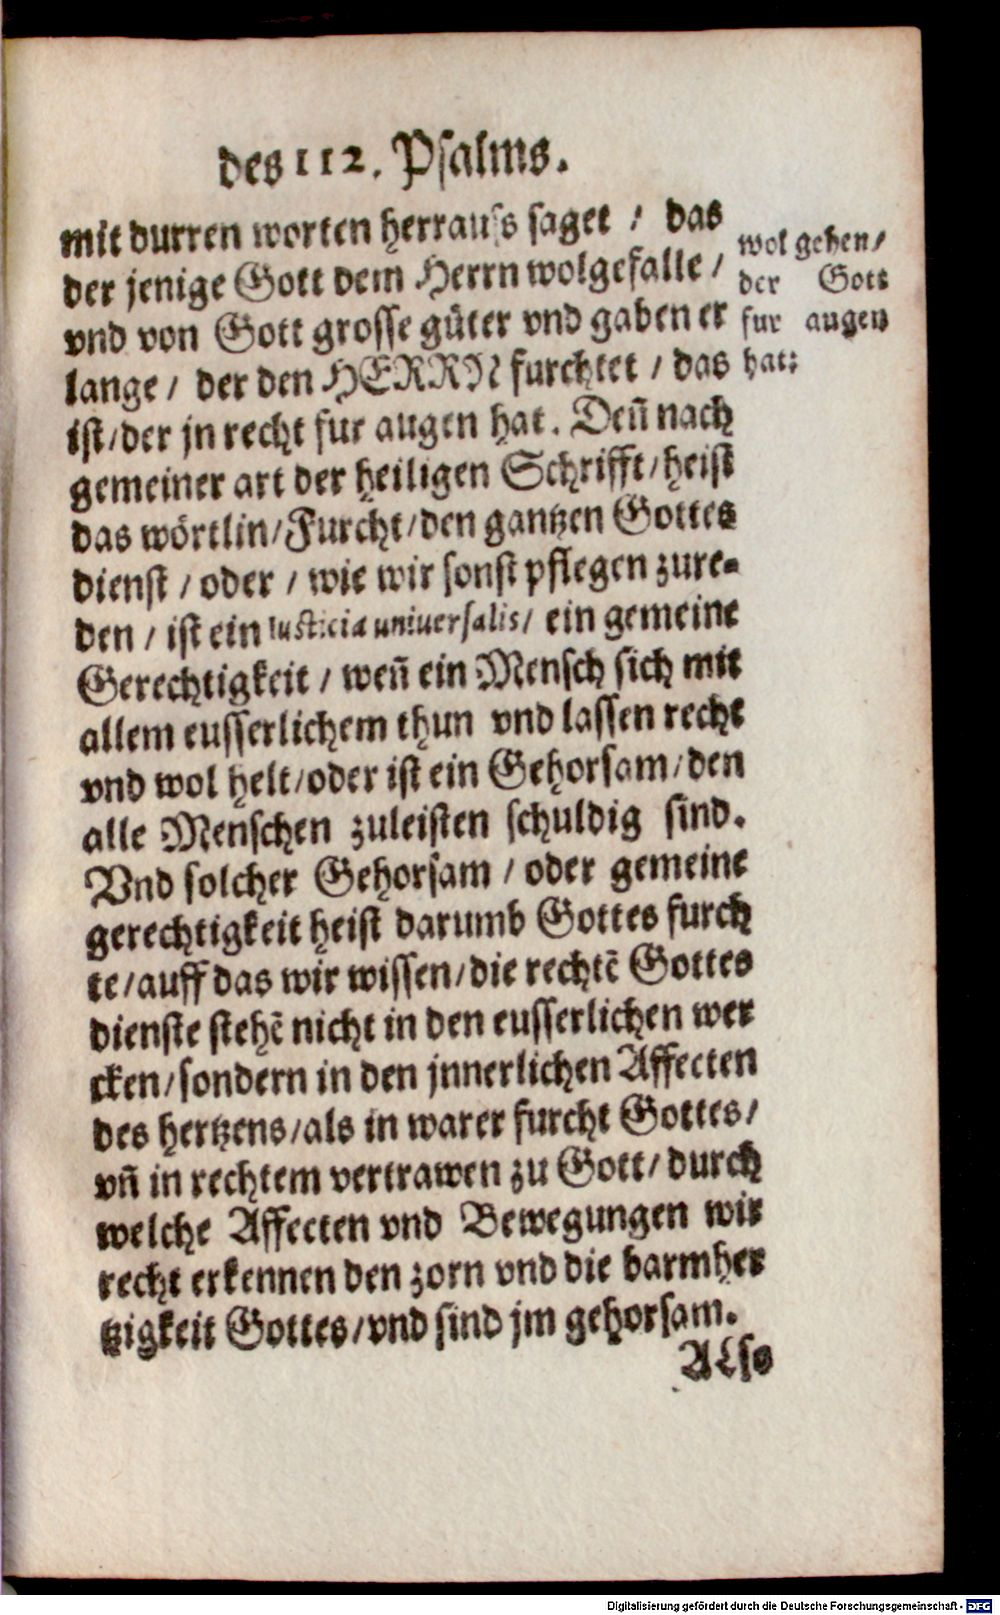 des 112. Psalms.
mit durren worten herrauss saget / das
der jenige Gott dem Herrn wolgefalle /
vnd von Gott grosse güter vnd gaben er
lange / der den HERRN furchtet / das
ist / der jn recht fur augen hat. Deñ nach
gemeiner art der heiligen Schrifft / heist
das wörtlin / Furcht / den gantzen Gottes
dienst / oder / wie wir sonst pflegen zure-
den / ist ein Iusticia uniuersalis / ein gemeine
Gerechtigkeit / weñ ein Mensch sich mit
allem eusserlichem thun vnd lassen recht
vnd wol helt / oder ist ein Gehorsam / den
alle Menschen zuleisten schuldig sind.
Vnd solcher Gehorsam / oder gemeine
gerechtigkeit heist darumb Gottes furch
te / auff das wir wissen / die rechtẽ Gottes
dienste stehẽ nicht in den eusserlichen wer
cken / sondern in den jnnerlichen Affecten
des hertzens / als in warer furcht Gottes /
vñ in rechtem vertrawen zu Gott / durch
welche Affecten vnd Bewegungen wir
recht erkennen den zorn vnd die barmher
tzigkeit Gottes / vnd sind jm gehorsam.
ALso
wol gehen /
der Gott
fur augen
hat:
Digitalisierung gefördert durch die Deutsche Forschungsgemeinschaft - DFG